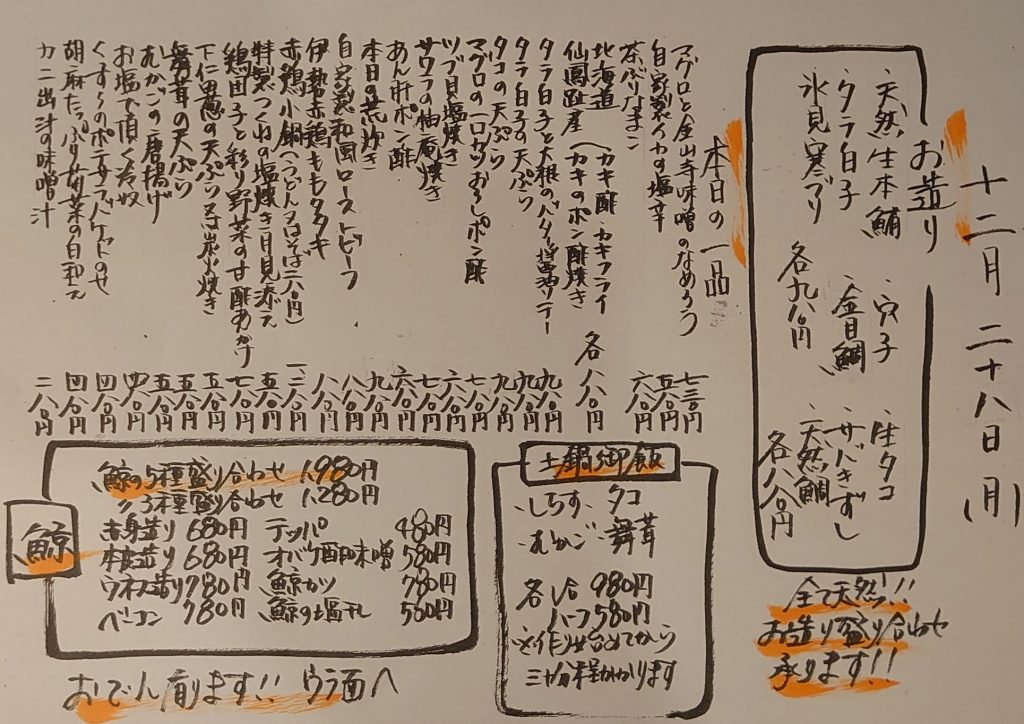 十二月二十八日(月)
お造り
・天然生本鮪 ・穴子 ・生タコ
・タラ白子 ・金目鯛 ・サバきずし
・氷見寒ブリ 各九八〇円 ・天然鯛 各八八〇円
全て天然!!
お造り盛り合わせ
承ります!!
本日の一品
マグロと金山寺味噌のなめろう 七三〇円
自家製イカの塩辛 五八〇円
茶ぶりなまこ 六八〇円
北海道 (カキ酢 カキフライ
仙鳳趾産 (カキのポン酢焼き 各八八〇円
タラ白子と大根のバター醤油ソテー 九八〇円
タラ白子の天ぷら 九八〇円
タコの天ぷら 九八〇円
マグロの一口カツおろしポン酢 七八〇円
ツブ貝塩焼き 六八〇円
サワラの柚庵焼き 七八〇円
あん肝ポン酢 六八〇円
本日の荒炊き 九八〇円
自家製和風ローストビーフ 八八〇円
伊勢赤鶏ももタタキ 八八〇円
赤鶏小鍋(うどん又はそば二八〇円) 一、二八〇円
特製つくねの塩焼き月見添え 五八〇円
鶏団子と彩り野菜の甘酢あんかけ 七八〇円
下仁田葱の天ぷら又は炭火焼き 五八〇円
舞茸の天ぷら 五八〇円
むかごの唐揚げ 五八〇円
お塩で頂く冷奴 四八〇円
のポテサラバケットのせ 四八〇円
胡麻たっぷり菊菜の白和え 四八〇円
カニ出汁の味噌汁 二八〇円
土鍋御飯
・しらす ・タコ
・むかご ・舞茸
各 980円
ハーフ580円
三十分程かかります
鯨
鯨の5種盛り合わせ 1.980円
〃3種盛り合わせ 1.280円
赤身造り 680円 テッパ 480円
本皮造り 680円 オバケ酢味噌 580円
ウネス造り 780円 鯨カツ 780円
ベーコン 780円 鯨の塩干し 580円
おでん有ります!! ウラ面へ